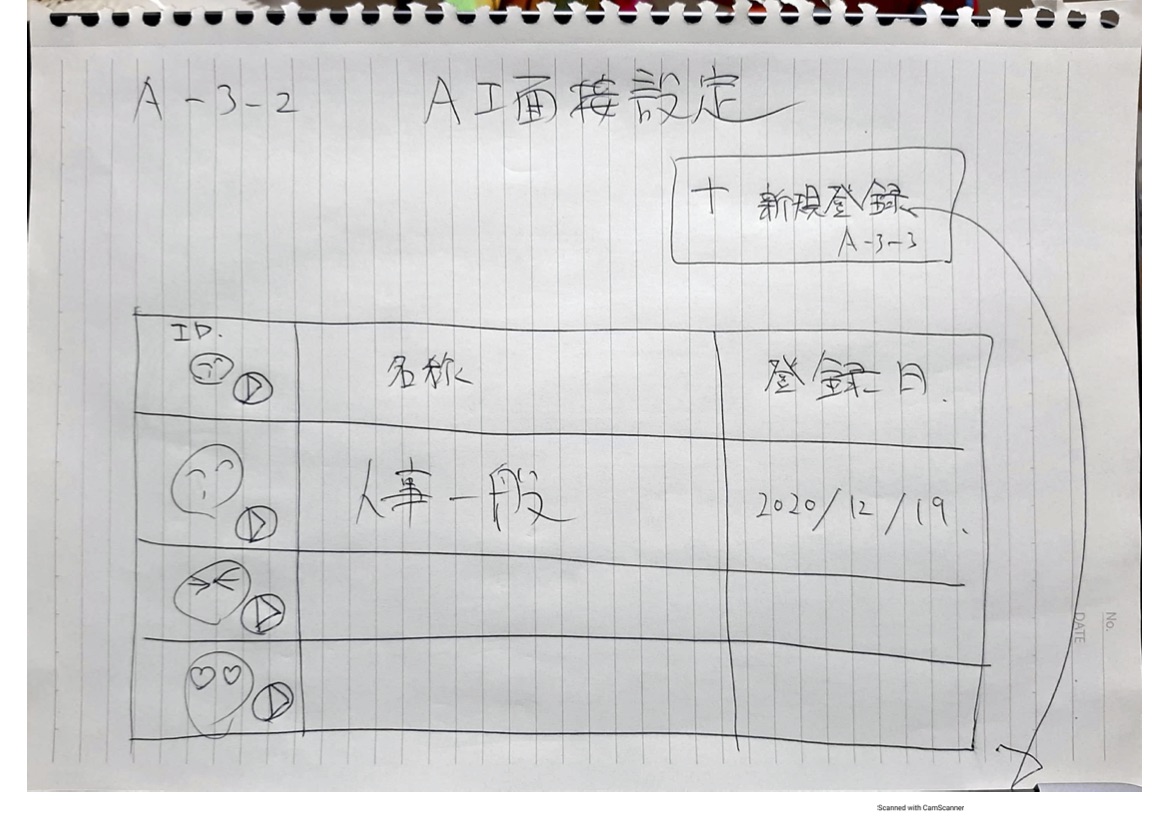 A-3-2 AI面接設定
+ 新規登録
A-3-3
ID.
名称 登録日.
人事一般 2020/12/19.
No.
DATE
Scanned with CamScanner